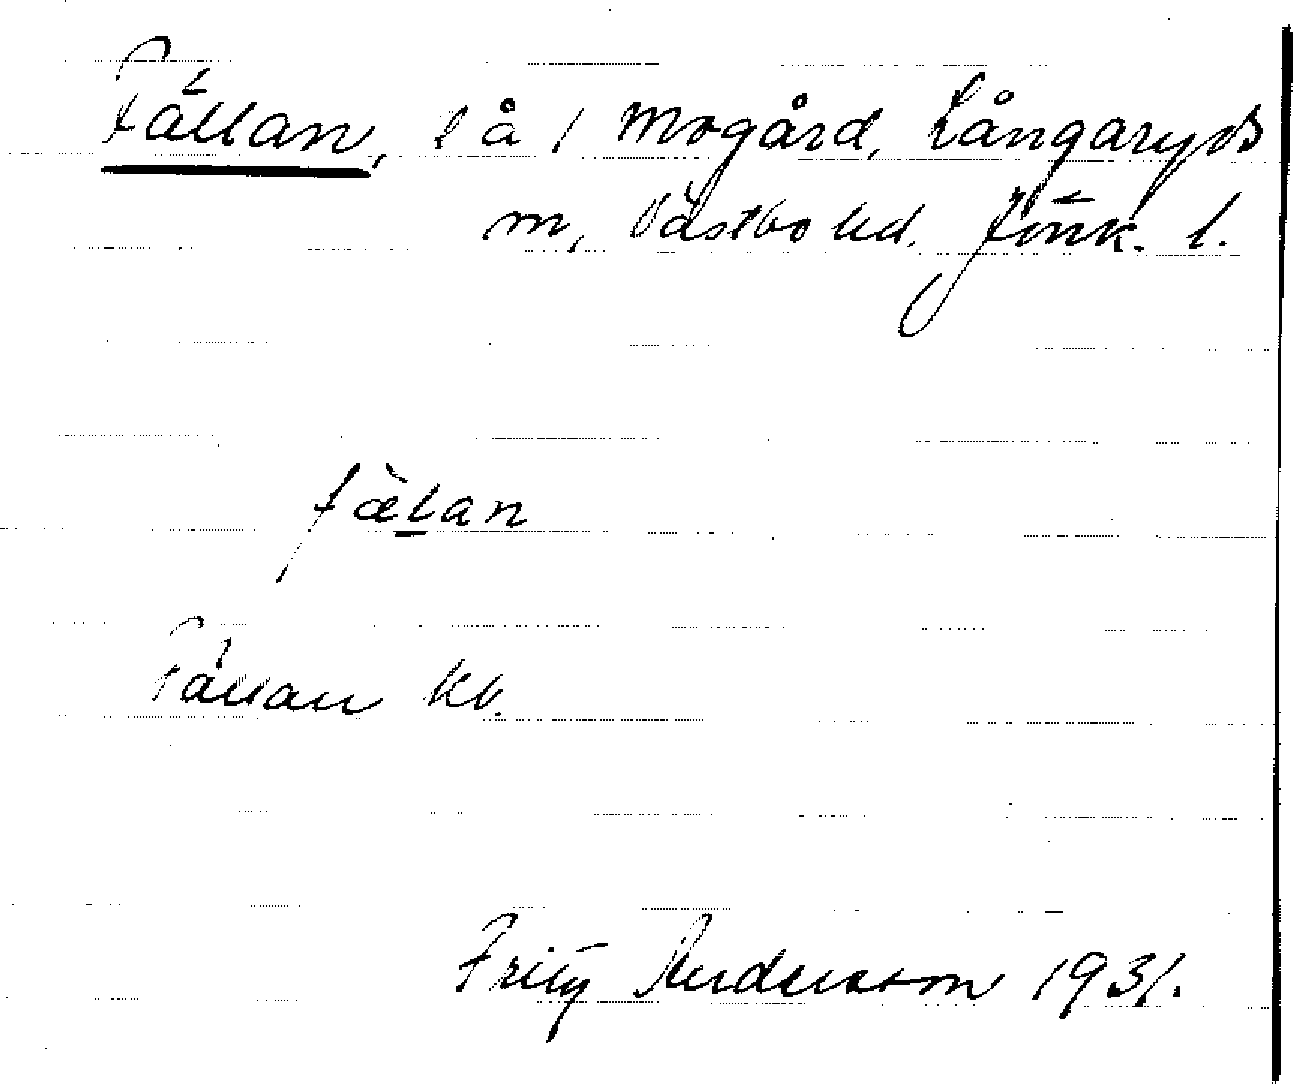 Fällan, l å / Mogård, Långaryds
m, Västbo hd. Jönk. l.
fælan
Fällan kb.
Fritz Andersson 1931.